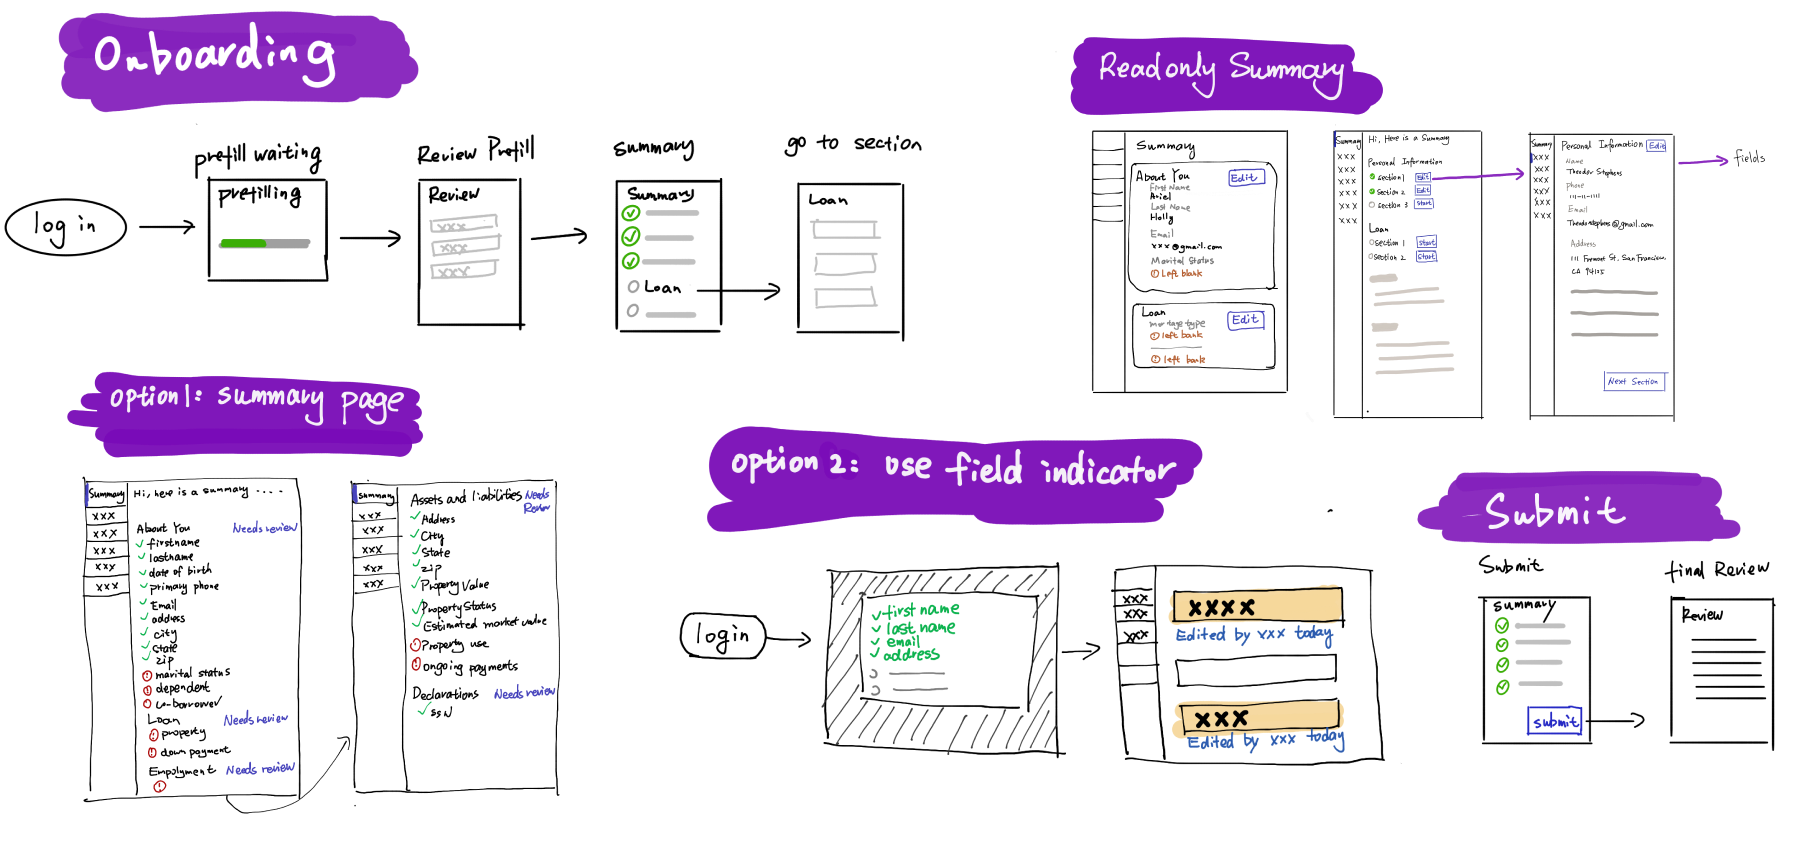 Onboarding
prefill waiting
Review Prefill
Summary
go to section
log in
prefilling
Review
xxx
xxx
xxx
Summary
Loan
Loan
Readonly Summary
Summary
About You
Edit
First Name
Ariel
Last Name
Holly
Email
xxx@gmail.com
Marital Status
! Left blank
Loan
Edit
mortage type
! left bank
! left bank
Summary
xxx
xxx
xxx
xxx
xxx
xxx
Hi, Here is a Summary
Personal Information
Section 1 Edit
Section 2 Edit
Section 3 Start
Loan
Section 1 Start
Section 2 Start
Summary
xxx
xxx
xxx
xxx
xxx
xxx
Personal Information Edit
Name
Theodor Stephens
phone
111-11-1111
Email
Theodorstephens@gmail.com
Address
111 Fremont St. San Francisco,
CA 94105
Next Section
fields
option1: summary page
Summary
xxx
xxx
xxx
xxx
xxx
Hi, here is a summary ....
About You Needs review
firstname
lastname
date of birth
primary phone
Email
address
city
state
zip
! marital status
! dependent
! co-borrower
Loan Needs review
! property
! down payment
Empolyment Needs review
!
Summary
xxx
xxx
xxx
xxx
xxx
Assets and liabilities Needs
Review
Address
City
State
zip
Property Value
Property Status
Estimated market value
! Property use
! ongoing payments
Declarations Needs review
SSN
option 2: use field indicator
login
first name
last name
email
address
xxx
xxx
xxx
xxxx
Edited by xxx today
xxx
Edited by xxx today
Submit
Submit
final Review
Summary
submit
Review